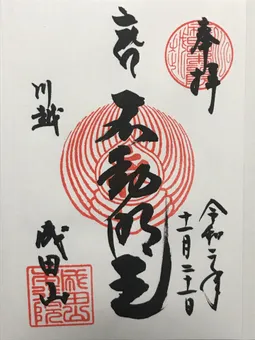 奉拝
令和二年
十一月二十一日
不動明王
川越
成田山